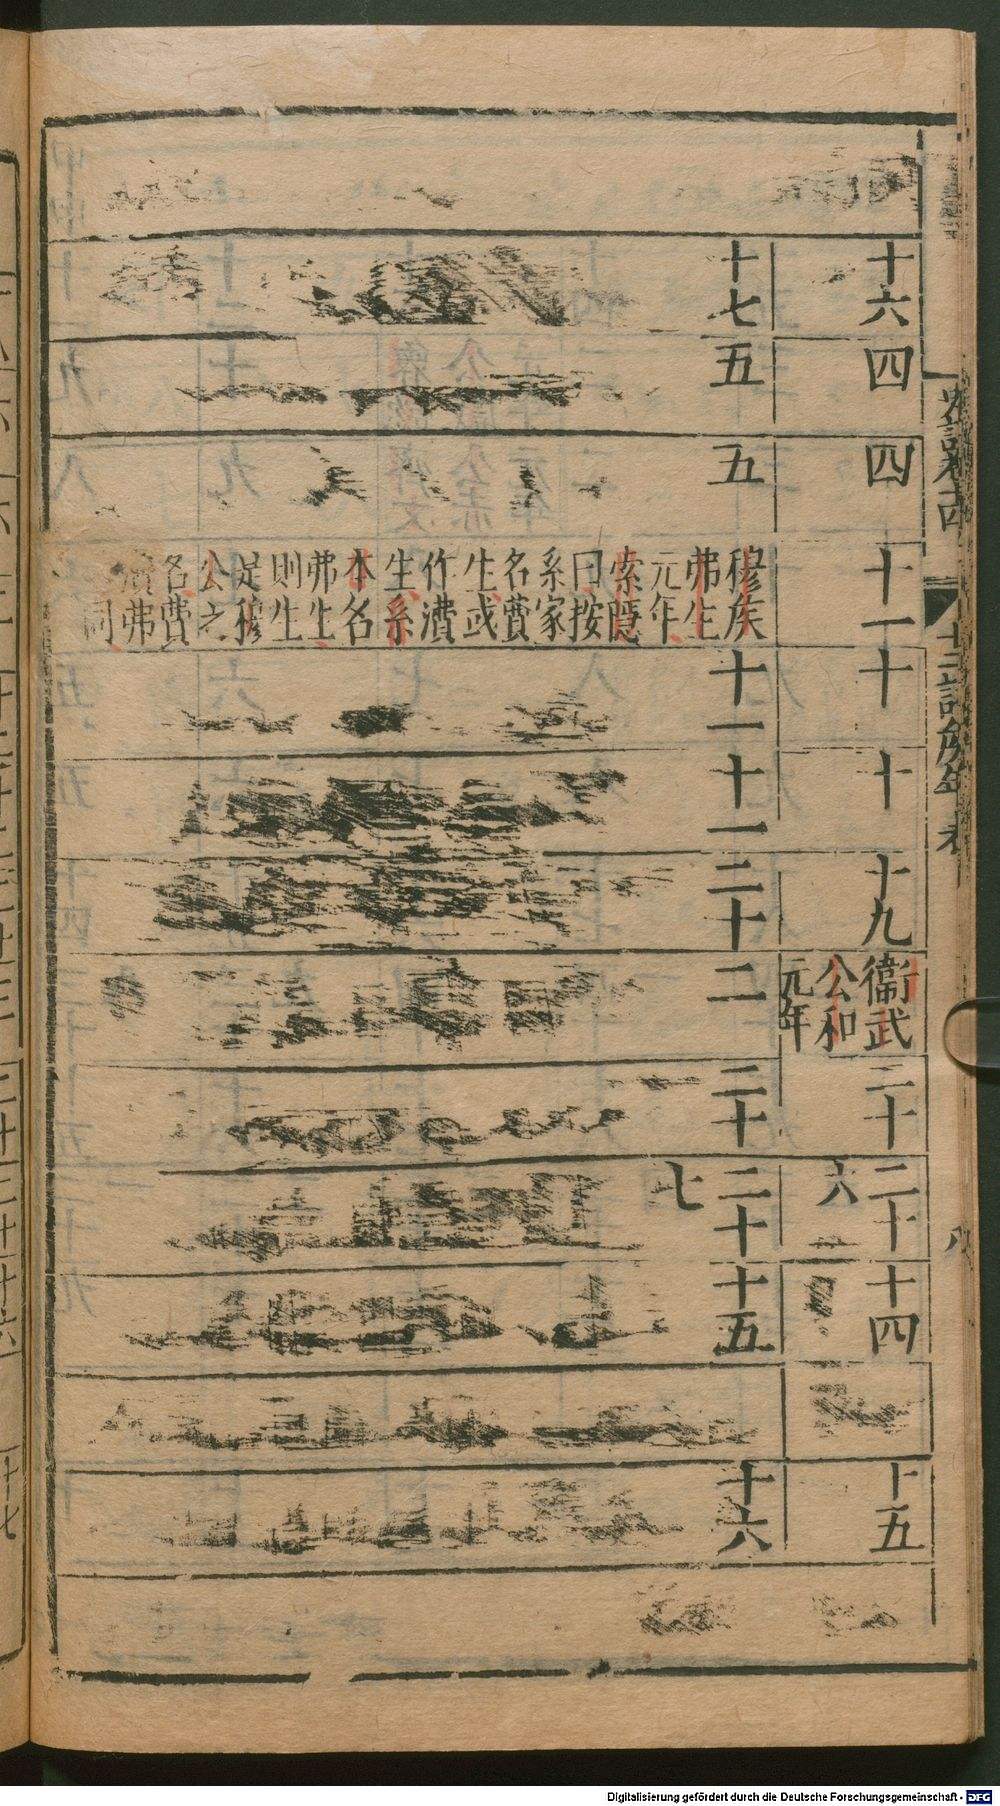 史記卷十四
十二諸侯年表
八
十六
四
四
十一
十
十
十九
衞武
公和
元年
二十
二十
六
十四
十五
十七
五
五
穆矦
弗生
元年
索隱
曰按
系家
名費
生或
作濆
生系
本名
弗生
則生
是穆
公之
名費
濆弗
同
十一
十一
二十
二
二十
二十
七
十五
十六
Digitalisierung gefördert durch die Deutsche Forschungsgemeinschaft - DFG